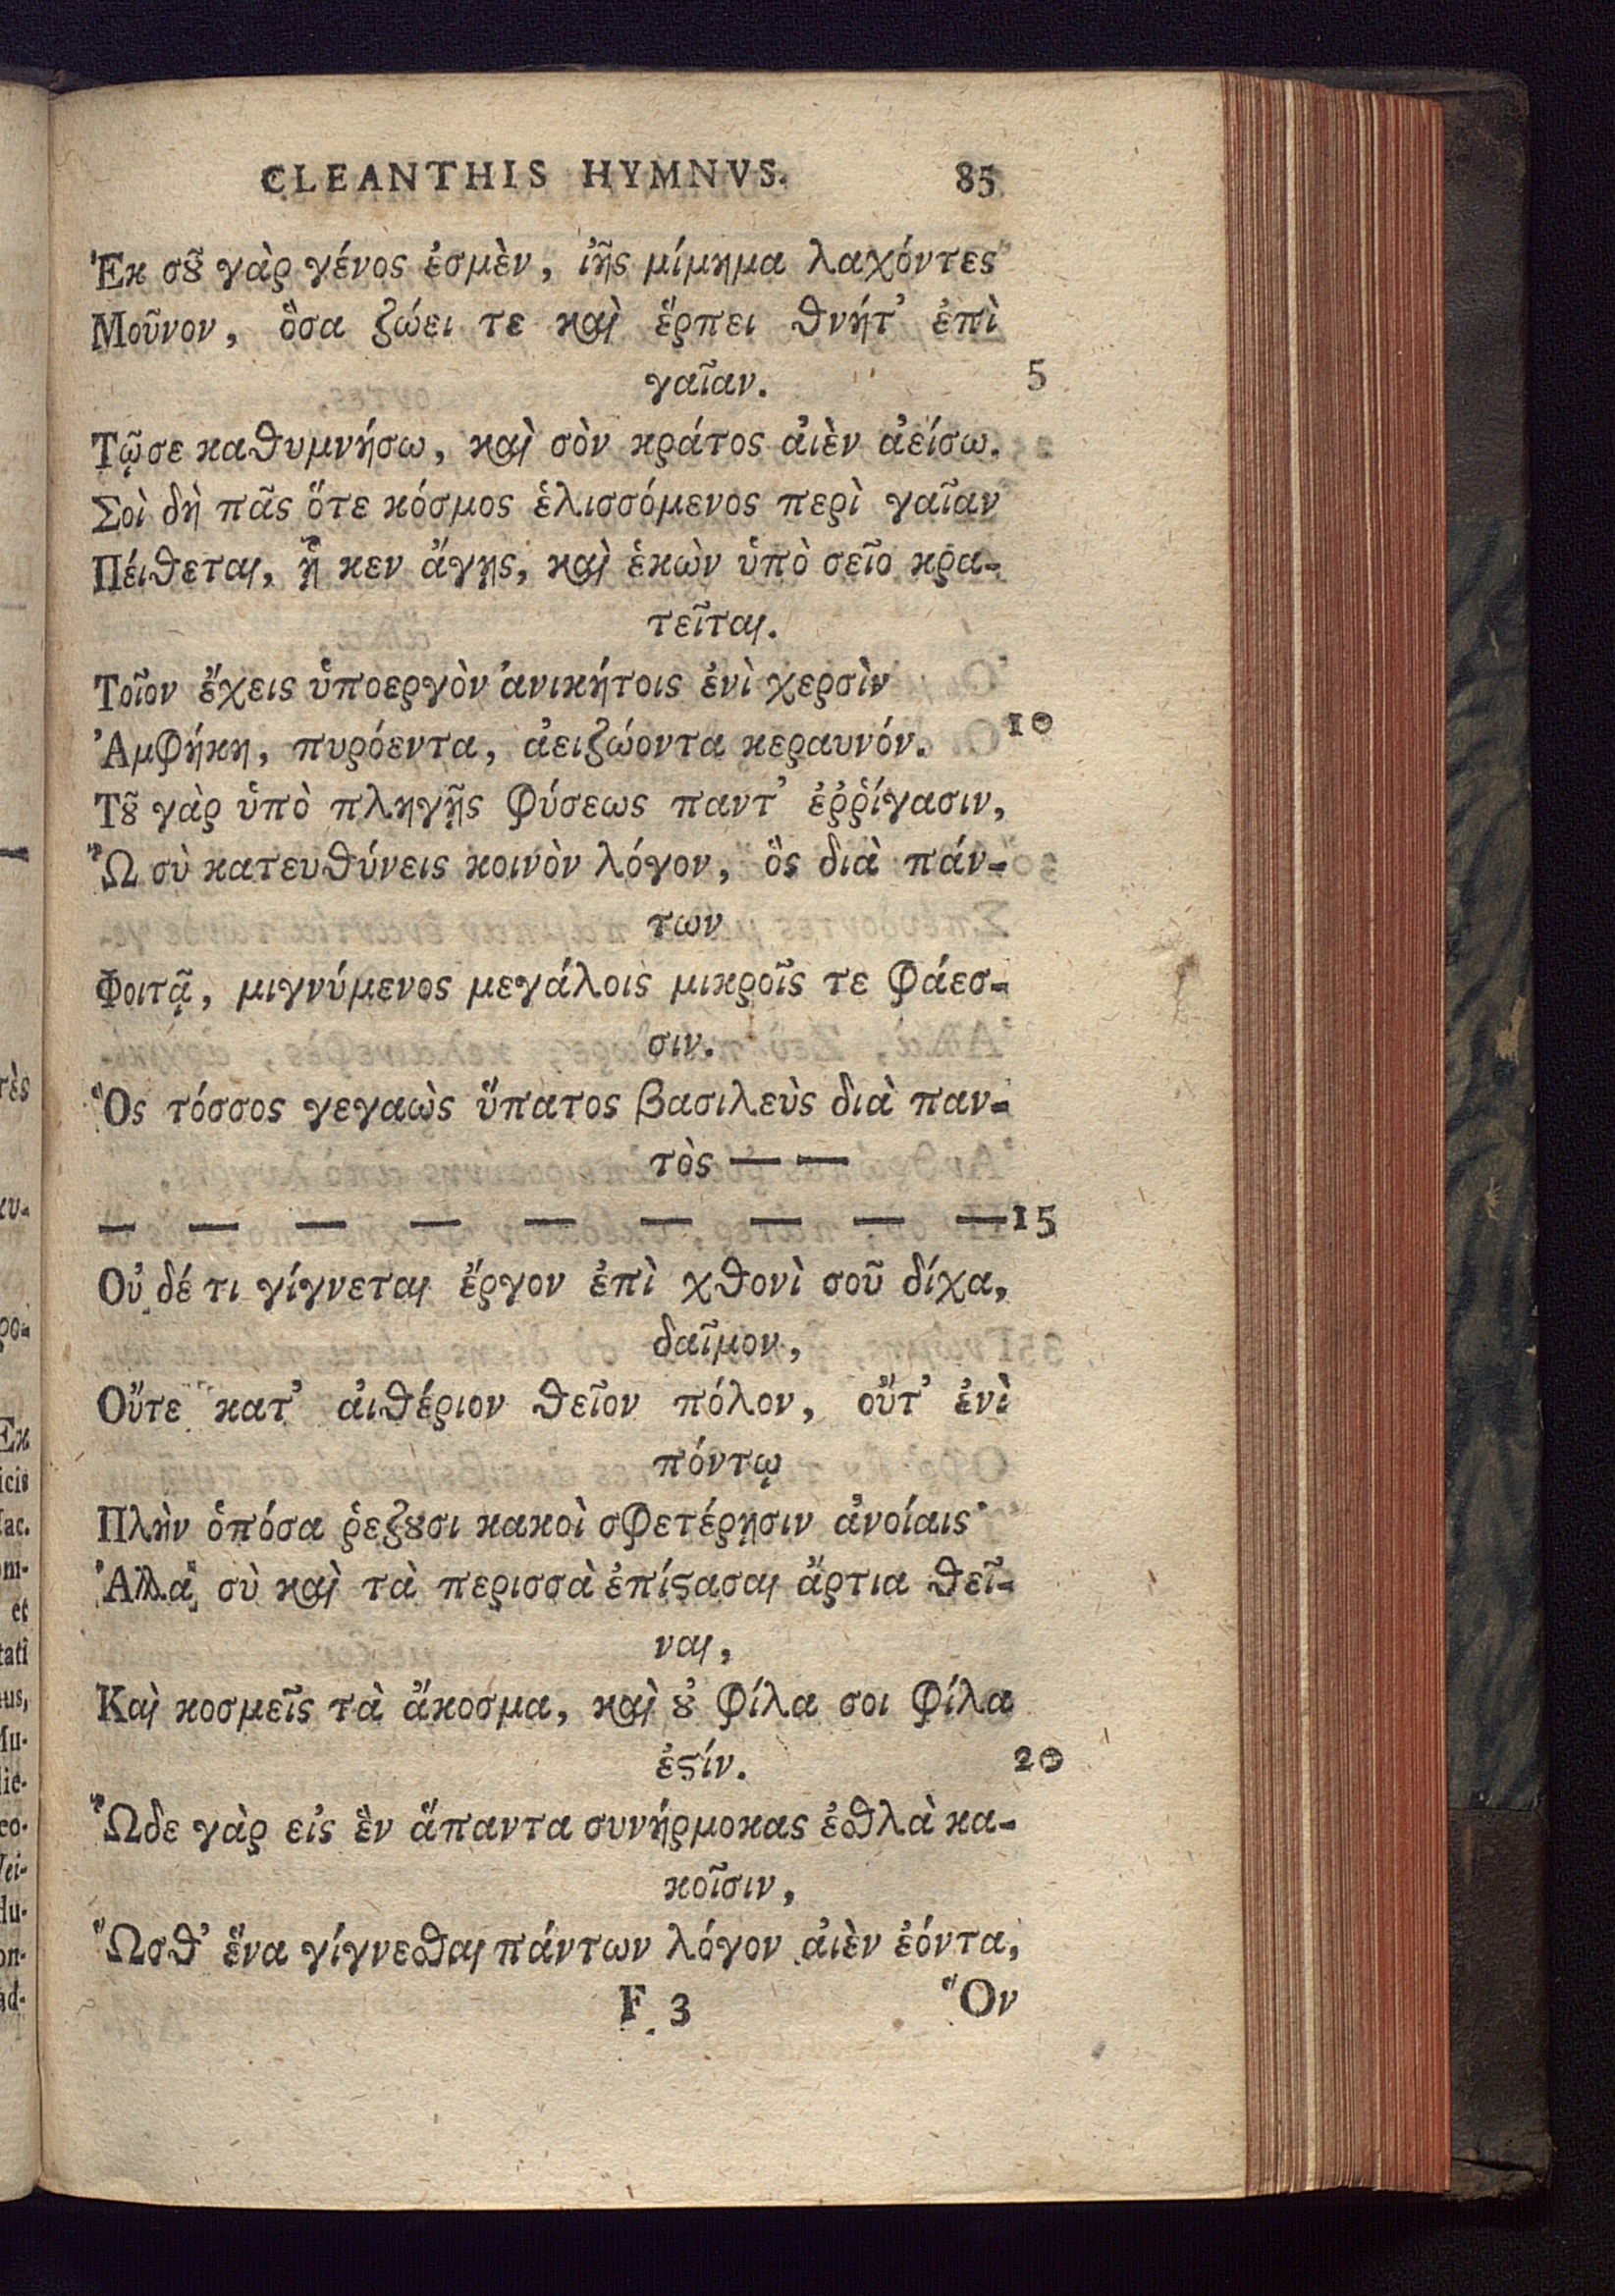 CLEANTHIS HYMNVS. 85
Ἐκ σȣ͂ γὰρ γένος ἐσμὲν, ἰῆς μίμημα λαχόντες
Μοῦνον, ὅσα ζώει τε καὶ ἕρπει θνήτ᾽ ἐπὶ
γαῖαν. 5
Τῷσε καθυμνήσω, καὶ σὸν κράτος ἀιὲν ἀείσω.
Σοὶ δὴ πᾶς ὅτε κόσμος ἑλισσόμενος περὶ γαῖαν
Πέιθεται, ᾗ κεν ἄγῃς, καὶ ἑκὼν ὑπὸ σεῖο κρα-
τεῖται.
Τοῖον ἔχεις ὑποεργὸν ἀνικήτοις ἐνὶ χερσὶν
Ἀμφήκη, πυρόεντα, ἀειζώοντα κεραυνόν. 10
Τȣ͂ γὰρ ὑπὸ πληγῇς φύσεως παντ᾽ ἐῤῥίγασιν,
Ὧ σὺ κατευθύνεις κοινὸν λόγον, ὃς διὰ πάν-
των
Φοιτᾷ, μιγνύμενος μεγάλοις μικροῖς τε φάεσ-
σιν.
Ὃς τόσσος γεγαὼς ὕπατος βασιλεὺς διὰ παν-
τὸς — —
— — — — — — — — — 15
Οὐ δέ τι γίγνεται ἔργον ἐπὶ χθονὶ σοῦ δίχα,
δαῖμον,
Οὔτε κατ᾽ ἀιθέριον θεῖον πόλον, οὔτ᾽ ἐνὶ
πόντῳ
Πλὴν ὁπόσα ῥεζȣσι κακοὶ σφετέρῃσιν ἀνοίαις·
Ἀλλὰ σὺ καὶ τὰ περισσὰ ἐπίϛασαι ἄρτια θεῖ-
ναι,
Καὶ κοσμεῖς τὰ ἄκοσμα, καὶ ȣ̓ φίλα σοι φίλα
ἐϛίν. 20
Ὧδε γὰρ εἰς ἓν ἅπαντα συνήρμοκας ἐσθλὰ κα-
κοῖσιν,
Ὥσθ᾽ ἕνα γίγνεσθαι πάντων λόγον ἀιὲν ἐόντα,
F 3 Ὃν